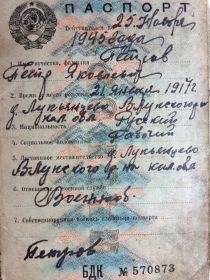 ПАСПОРТ
Действителен по 25 Ноября
1945 года
1. Имя, отчество, фамилия Петров
Петр Яковлевич
2. Время и место рождения 21 января 1917 г
д. Лукьянцево
3. Национальность Русский
4. Социальное положение Рабочий
5. Постоянное местожительство д. Лукьянцево
6. Отношение к военной службе
Военнообяз.
7. Собственноручная подпись владельца паспорта
Петров
БДК № 570873